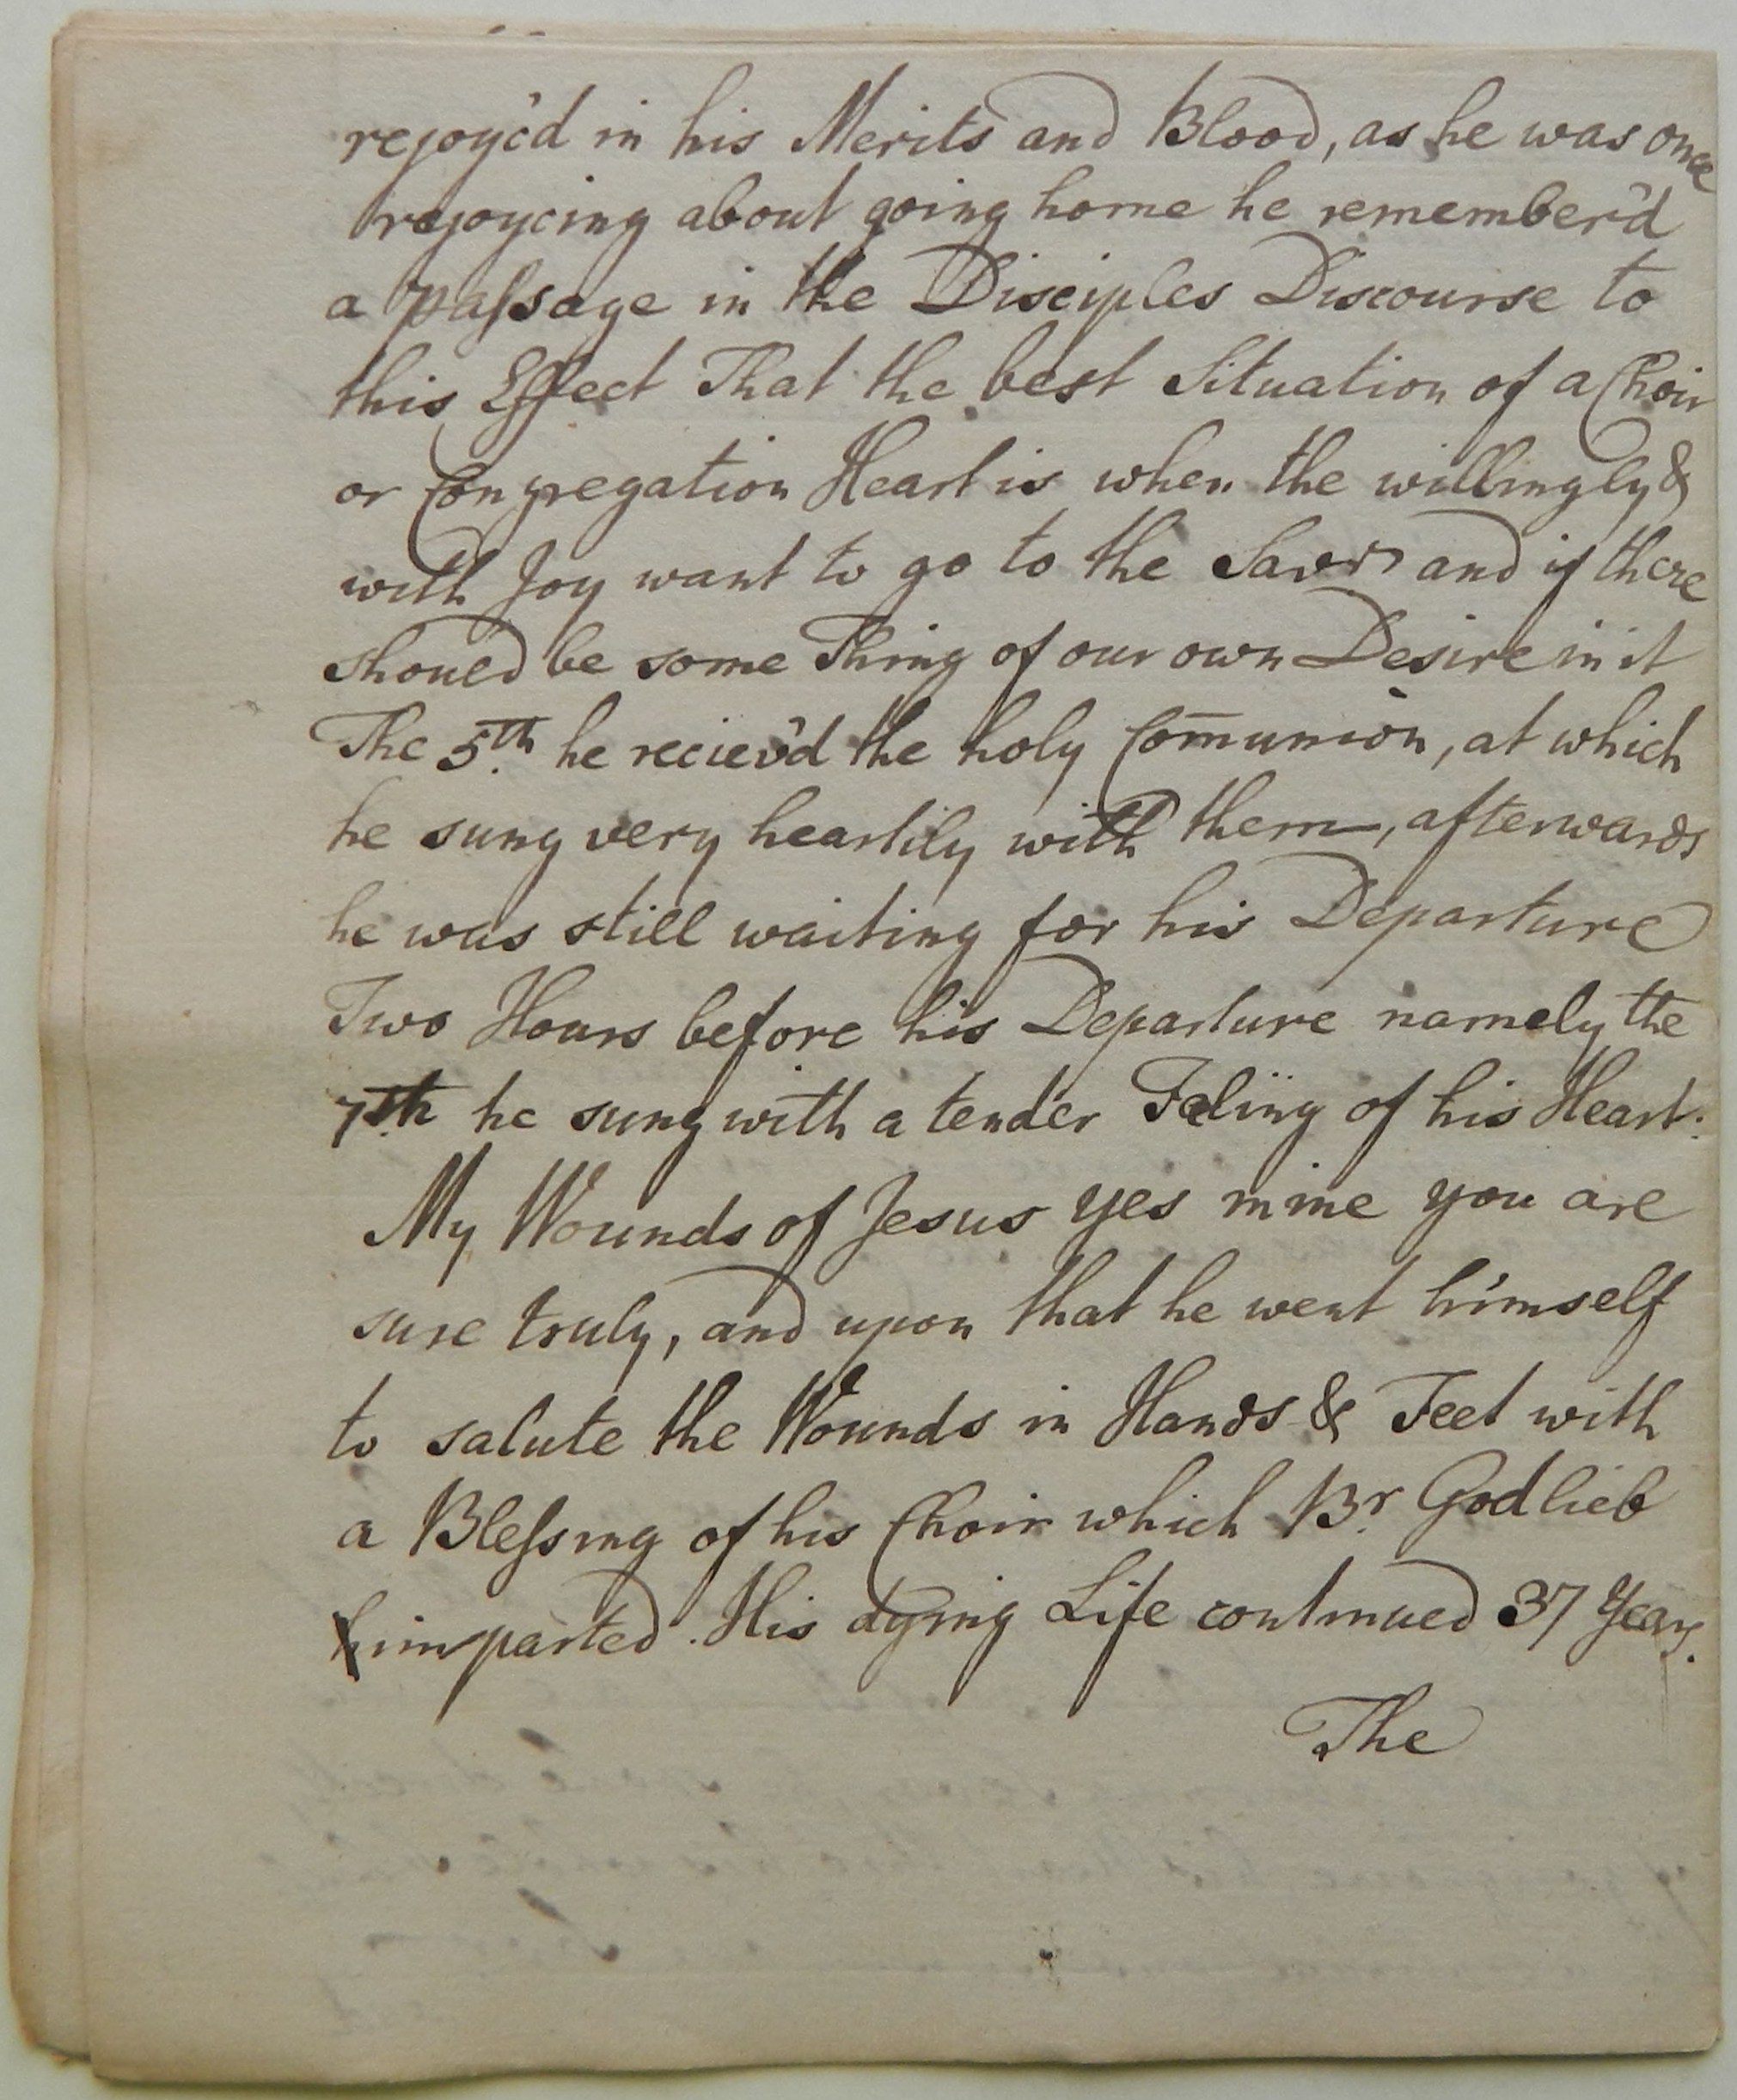 rejoyc'd in his Merits and Blood, as he was once
rejoycing about going home he remember'd
a paſsage in the Disciples Discourse to
this Effect That the best Situation of a Choir
or Congregation Heart is when the willingly &
with Joy want to go to the Savr and if there
should be some Thing of our own Desire in it
The 5th he reciev'd the holy Com̄union, at which
he sung very heartily with them, afterwards
he was still waiting for his Departure
Two Hours before his Departure namely the
7th he sung with a tender Feling of his Heart:
My Wounds of Jesus yes mine you are
sure truly, and upon that he went himself
to salute the Wounds in Hands & Feet with
a Bleſsing of his Choir which Br. Godlieb
imparted. His dying Life continued 37 Years.
The